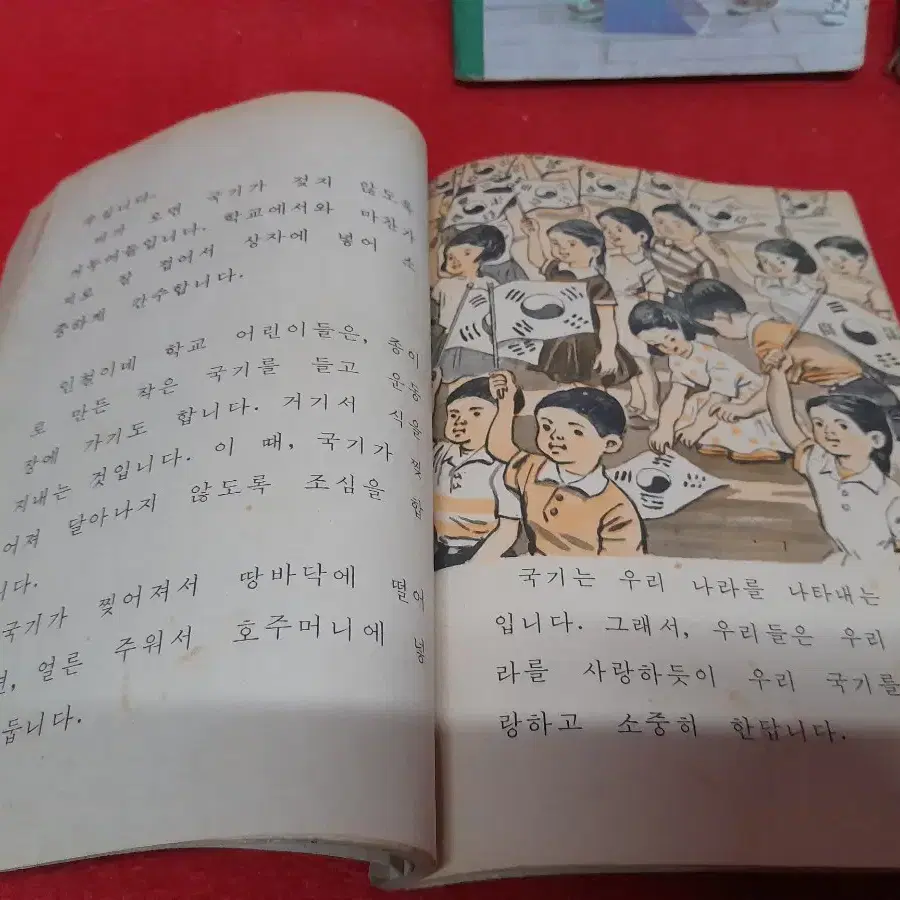 주입니다.
비가 오면 국기가 젖지 않도록
거두어들입니다. 학교에서와 마찬가
지로 잘 접어서 상자에 넣어 소
중하게 간수합니다.
인철이네 학교 어린이들은, 종이
로 만든 작은 국기를 들고 운동
장에 가기도 합니다. 거기서 식을
지내는 것입니다. 이 때, 국기가 찢
어져 달아나지 않도록 조심을 합
니다.
국기가 찢어져서 땅바닥에 떨어
면, 얼른 주워서 호주머니에 넣
둡니다.
국기는 우리 나라를 나타내는
입니다. 그래서, 우리들은 우리
라를 사랑하듯이 우리 국기를
랑하고 소중히 한답니다.